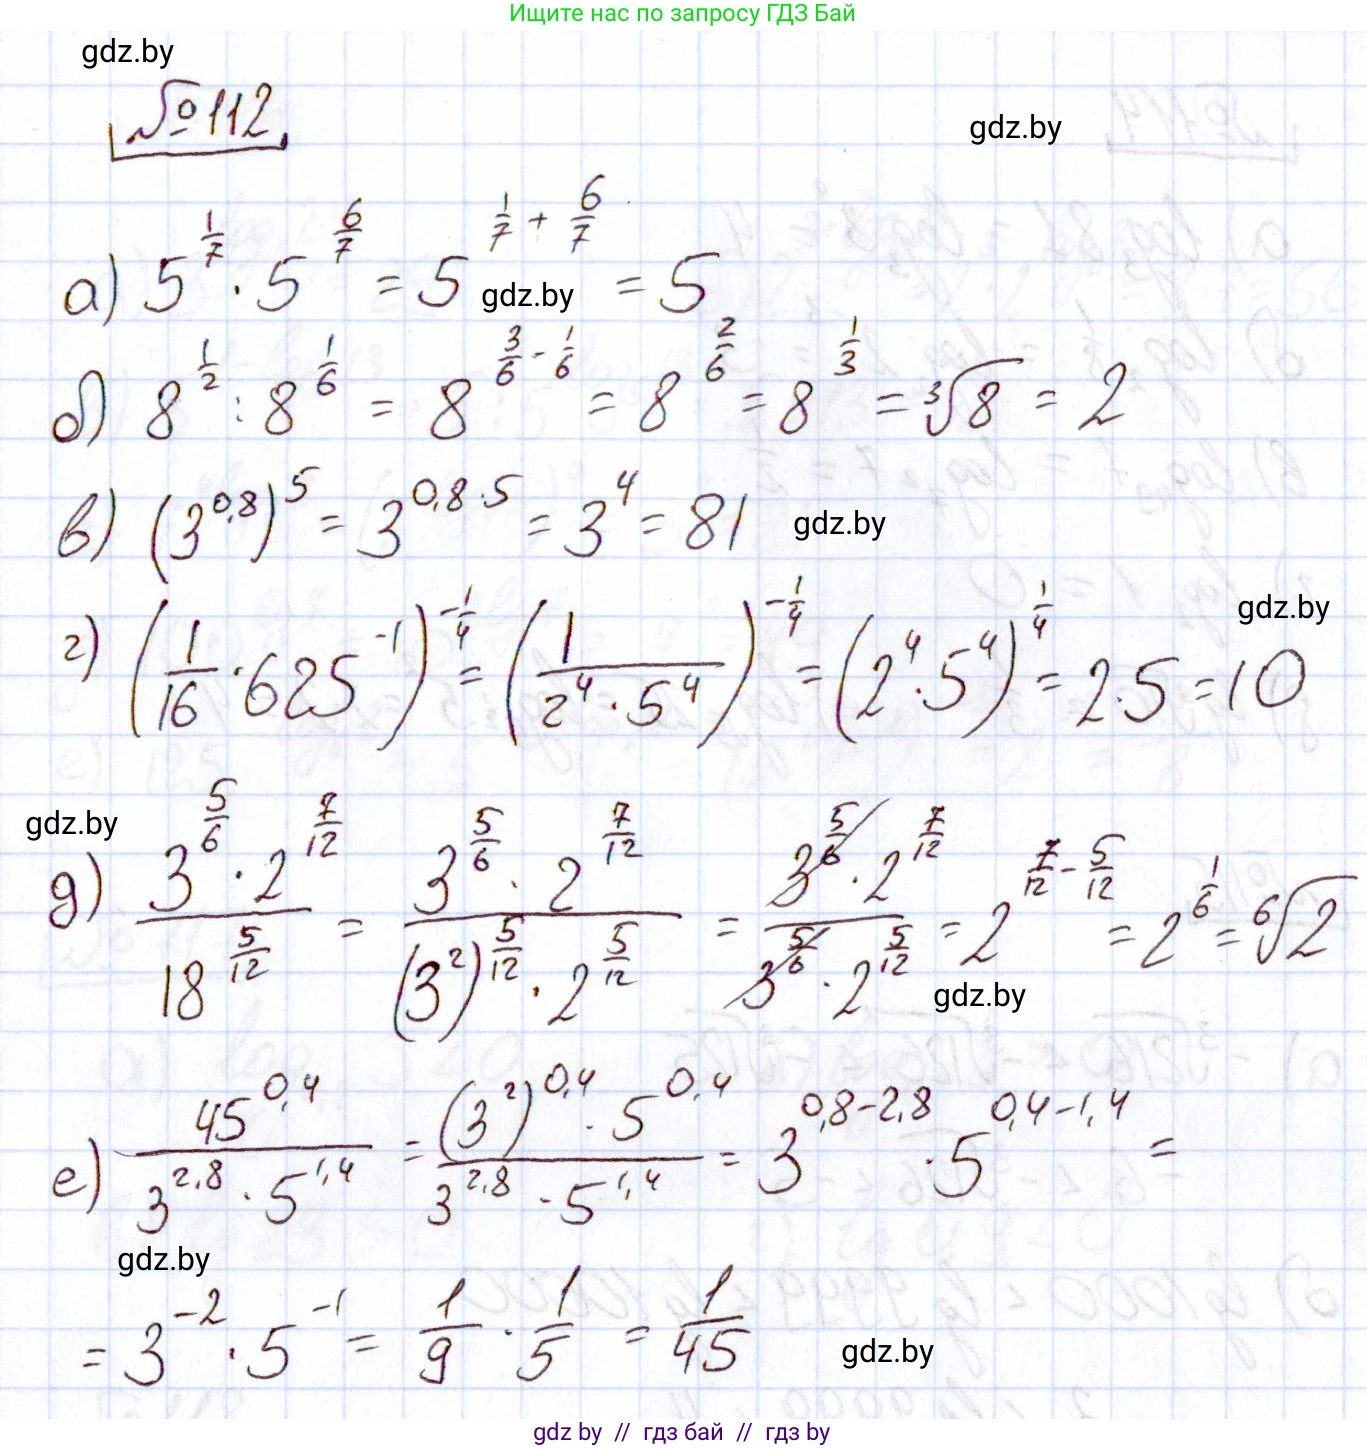 Ищите нас по запросу ГДЗ Бай
gdz.by
№112
gdz.by
а) 5^{1/7} · 5^{6/7} = 5^{1/7 + 6/7} = 5
gdz.by
б) 8^{1/2} : 8^{1/6} = 8^{3/6 - 1/6} = 8^{2/6} = 8^{1/3} = ∛8 = 2
в) (3^{0,8})^5 = 3^{0,8·5} = 3^4 = 81
gdz.by
gdz.by
г) (1/16 · 625^{-1})^{-1/4} = (1/(2^4 · 5^4))^{-1/4} = (2^4 · 5^4)^{1/4} = 2·5 = 10
gdz.by
д) (3^{5/6} · 2^{7/12})/(18^{5/12}) = (3^{5/6} · 2^{7/12})/((3^2)^{5/12} · 2^{5/12}) = (3^{5/6} · 2^{7/12})/(3^{5/6} · 2^{5/12}) = 2^{7/12 - 5/12} = 2^{1/6} = ⁶√2
gdz.by
е) (45^{0,4})/(3^{2,8} · 5^{1,4}) = ((3^2)^{0,4} · 5^{0,4})/(3^{2,8} · 5^{1,4}) = 3^{0,8-2,8} · 5^{0,4-1,4} =
gdz.by
= 3^{-2} · 5^{-1} = 1/9 · 1/5 = 1/45
gdz.by
gdz by // гдз бай // гдз by